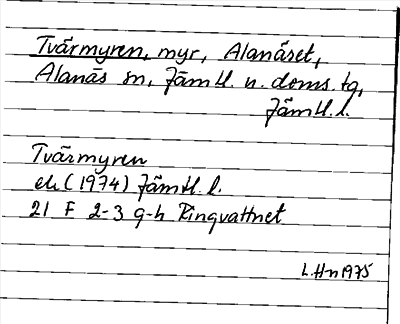 Tvärmyren, myr, Alanäset,
Alanäs sn, Jämtl. n. doms. tg,
Jämtl. l.
Tvärmyren
ek (1974) Jämtl. l.
21 F 2-3 g-h Ringvattnet
L.Hn 1975